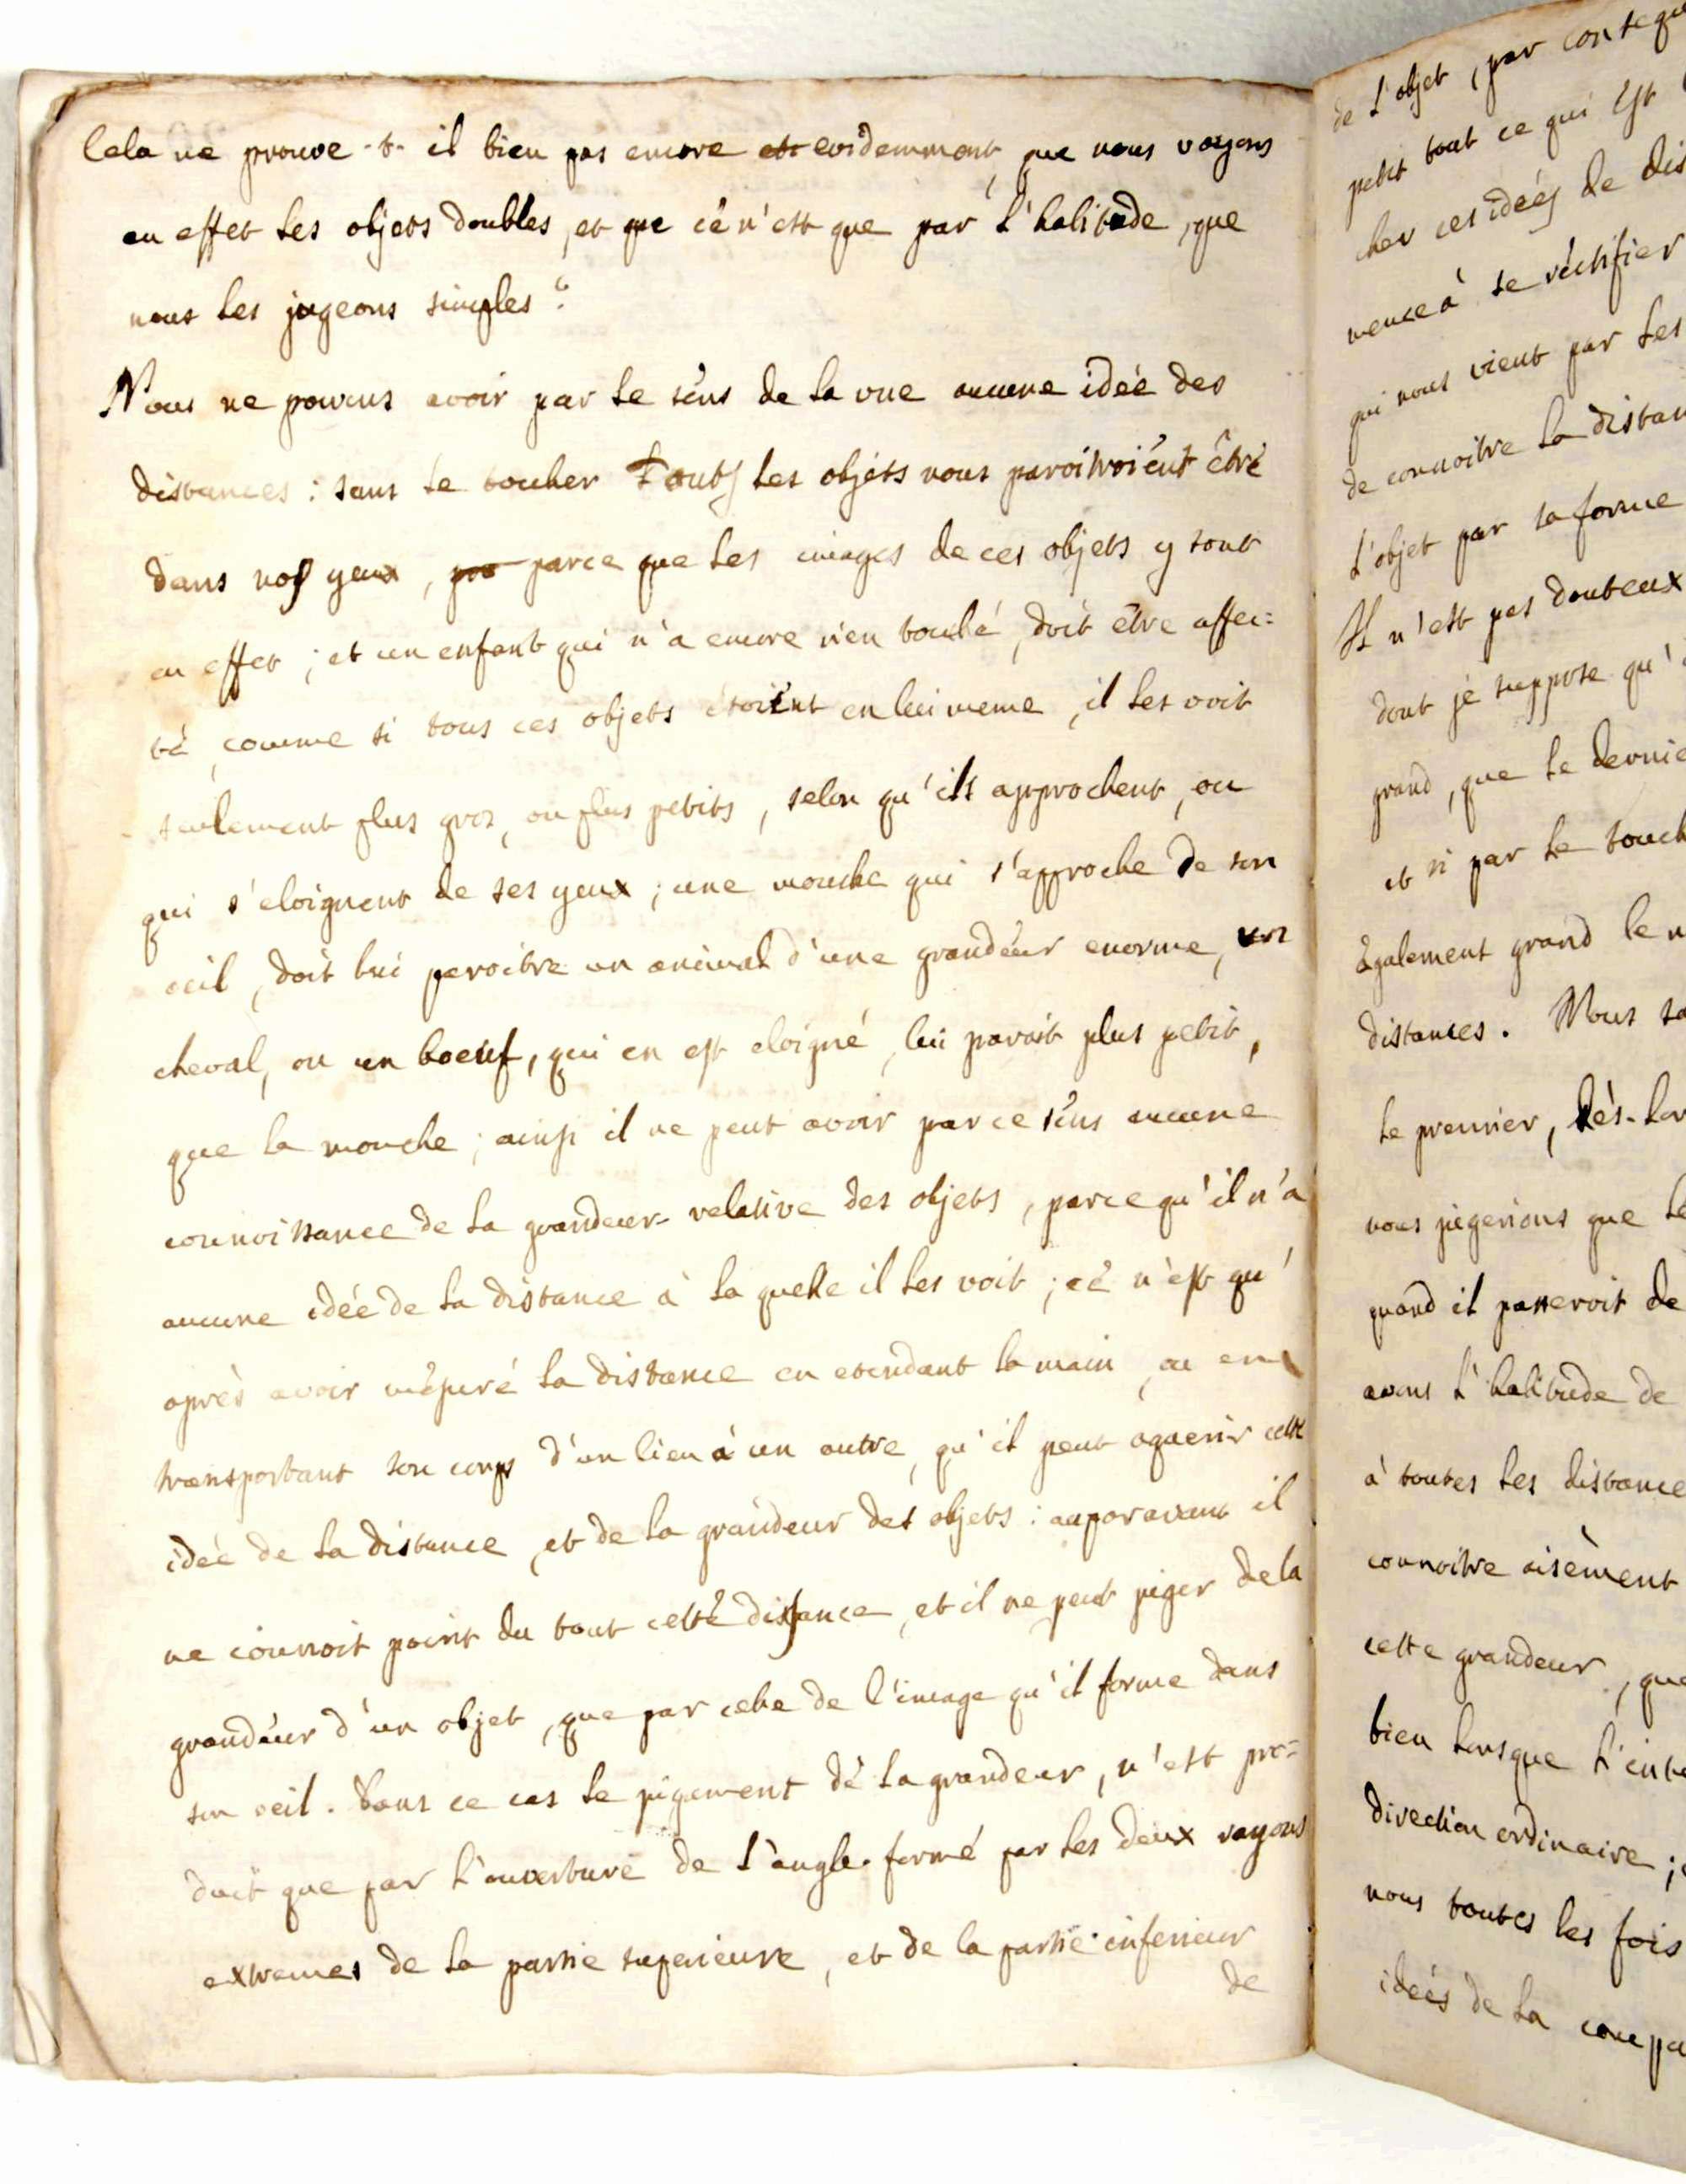 Cela ne prouve-t-il bien pas encore evidemment, que nous voyons
en effet les objets doubles, et que cè n'est que par l'habitude, que
nous les jugeons simples?
Nous ne pouvons avoir par le sèns de la vue aucune idée des
distances : sans le toucher Touts les objets nous paroitroiènt être
dans nos yeux, parce que les images de ces objets y sont
en effet ; et un enfant qui n'a encore rien touché, doit être affec=
té, comme si tous ces objets étoiént en lui meme, il les voit
seulement plus gros, ou plus petits, selon qu'ils approchent, ou
qui s'eloignent de ses yeux ; une mouche qui s'approche de son
oeil, doit lui paroitre un animal d'une grandeur enorme, un
cheval, ou un boeuf, qui en est eloigné, lui paroit plus petit,
que la mouche ; ainsi il ne peut avoir par ce sèns aucune
connoissance de la grandeur relative des objets, parce qu'il n'a
aucune idée de la distance à la quelle il les voit ; cè n'est qu'
après avoir mèsuré la distance en etendant la main, ou en
transportant son corps d'un lieu à un autre, qu'il peut aquerir cette
idée de la distance, et de la grandeur des objets : auparavant il
ne connoit point du tout cetté distance, et il ne peut juger de la
grandeur d'un objet, que par celle de l'image qu'il forme dans
son oeil. Dans ce cas le jugement dè la grandeur, n'est pro=
duit que par l'ouverture de l'angle formé par les deux rayons
extremes de la partie superieure, et de la partie inferieur
de
de l'objet, par
petit tout ce qui est
cher ces idées de
mence à se réctifier
qui nous vient par les
de connoitre la
l'objet par sa forme
Il n'est pas douteux
dont jè suppose qu'
grand, que le
et si par le
également grand le
distances. Nous
le premier, dès-
nous jugerions que
quand il passeroit de
avons l'habitude de
à toutes les
connoitre aisèment
cette grandeur, que
bien lorsque
direction ordinaire ;
nous toutes les fois
idées de la